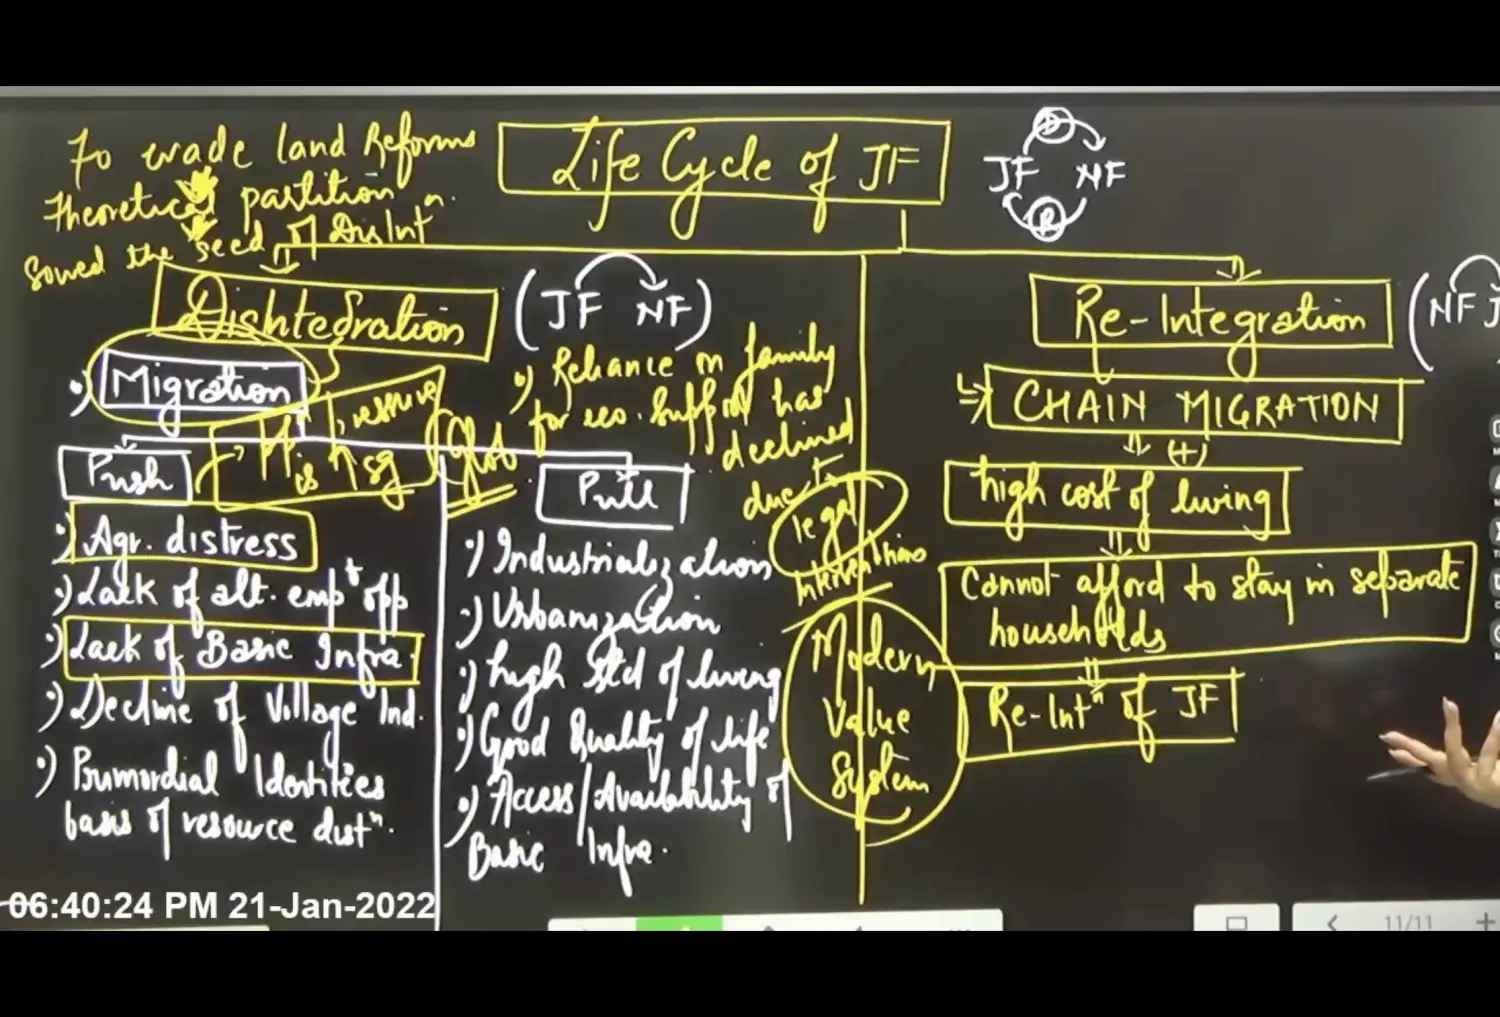 To evade land Reforms
Theoretical partition
Sowed the seed of DisIntⁿ.
Life Cycle of JF
D
JF NF
R
Disintegration
(JF NF)
•) Migration
Push
•) Agr. distress
•) Lack of alt. empᵗ opp
•) Lack of Basic Infra.
•) Decline of Village Ind.
•) Primordial Identities
basis of resource distⁿ.
•) Reliance on family
for eco. support has
declined
due to
legal
Interventions
Pull
•) Industrialization
•) Urbanization
•) high std of living
•) Good Quality of life
•) Access/Availability of
Basic Infra.
Modern
Value
System
Re-Integration
(NF J
CHAIN MIGRATION
(+)
high cost of living
Cannot afford to stay in separate
households
Re-Intⁿ of JF
06:40:24 PM 21-Jan-2022
11/11